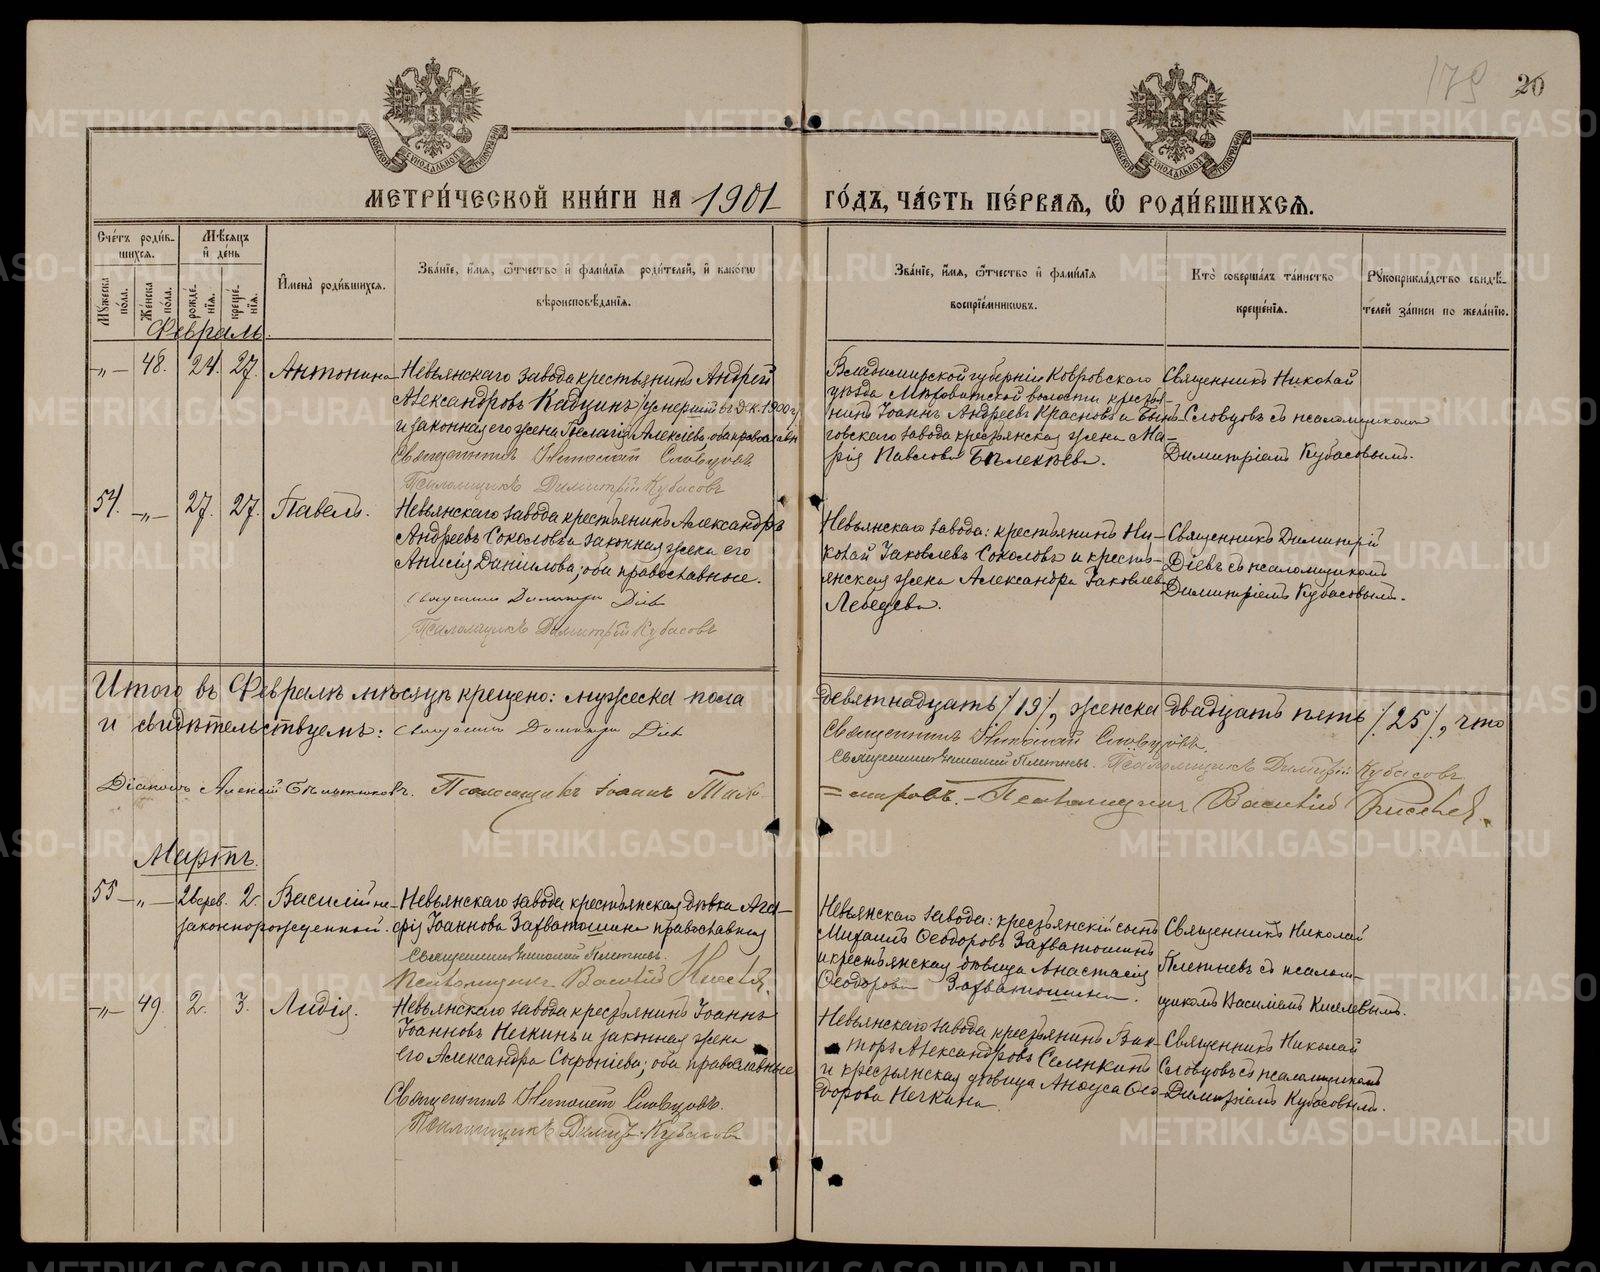 179 20
МЕТРИ́ЧЕСКОЙ КНИ́ГИ НА 1901 ГО́ДЪ, ЧА́СТЬ ПЕ́РВАѦ, Ѽ РОДИ́ВШИХСѦ.
Сче́тъ роди́вшихся.
Мꙋ́жеска пола.
Же́нска пола.
Мѣ́сѧцъ и де́нь
рожде́нїѧ.
креще́нїѧ.
И҆мена̀ роди́вшихсѧ.
Зва́нїе, и҆́мѧ, ѻ҆́тчество и҆ фами́лїѧ роди́телей, и҆ како́гѡ
вѣроисповѣ́данїѧ.
Зва́нїе, и҆́мѧ, ѻ҆́тчество и҆ фами́лїѧ
воспрїе́мниковъ.
Кто̀ соверша́лъ та́инство
креще́нїѧ.
Рꙋкоприкла́дство свидѣ́телей за́писи по жела́нїю.
Февраль.
-„- 48. 24. 27. Антонина
Невьянскаго завода крестьянинъ Андрей
Александровъ Кадцинъ /умершій въ Дек. 1900 г/
и законная его жена Пелагія Алексіева, оба православн
Священникъ Николай Словцовъ
Псаломщикъ Димитрій Кубасовъ
Владимирской губерніи Ковровскаго
уѣзда волости крестья-
нинъ Іоаннъ Андреевъ Красновъ и Бын-
говскаго завода крестьянская жена Ма-
рія Павлова
Священникъ Николай
Словцовъ съ псаломщикомъ
Димитріемъ Кубасовымъ.
54. -„- 27. 27. Павелъ.
Невьянскаго завода крестьянинъ Александръ
Андреевъ Соколовъ и законная жена его
Анисія Даніилова; оба православные.
Священникъ Димитрій Діевъ
Псаломщикъ Димитрій Кубасовъ
Невьянскаго завода: крестьянинъ Ни-
колай Іаковлевъ Соколовъ и кресть-
янская жена Александра Іаковлева
Лебедева.
Священникъ Димитрій
Діевъ съ псаломщикомъ
Димитріемъ Кубасовымъ.
Итого въ Февралѣ мѣсяцѣ крещено: мужеска пола девятнадцать /19/, женска двадцать пять /25/, что
и свидѣтельствуемъ: Священникъ Димитрій Діевъ
Священникъ Николай Словцовъ.
Священникъ Николай Плетневъ. Псаломщикъ Димитрій Кубасовъ
Діаконъ Алексій Псаломщикъ Іоаннъ Тихо-
=мировъ. Псаломщикъ Василій Киселевъ.
Мартъ.
55 -„- 26 фев. 2. Василій не-
законнорожденный.
Невьянскаго завода крестьянская дѣвка Ага-
фія Іоаннова Захватошина православная
Священникъ Николай Плетневъ.
Псаломщикъ Василій Киселевъ.
Невьянскаго завода: крестьянскій сынъ
Михаилъ Ѳеодоровъ Захватошинъ
и крестьянская дѣвица Анастасія
Ѳеодорова Захватошина.
Священникъ Николай
Плетневъ съ псалом-
щикомъ Василіемъ Киселевымъ.
-„- 49. 2. 3. Лидія.
Невьянскаго завода крестьянинъ Іоаннъ
Іоанновъ Нечкинъ и законная жена
его Александра Софоніева; оба православные
Священникъ Николай Словцовъ.
Псаломщикъ Димитр. Кубасовъ
Невьянскаго завода крестьянинъ Вик-
торъ Александровъ Селенкинъ
и крестьянская дѣвица Анѳуса Ѳео-
дорова Нечкина.
Священникъ Николай
Словцовъ съ псаломщикомъ
Димитріемъ Кубасовымъ.
METRIKI.GASO-URAL.RU